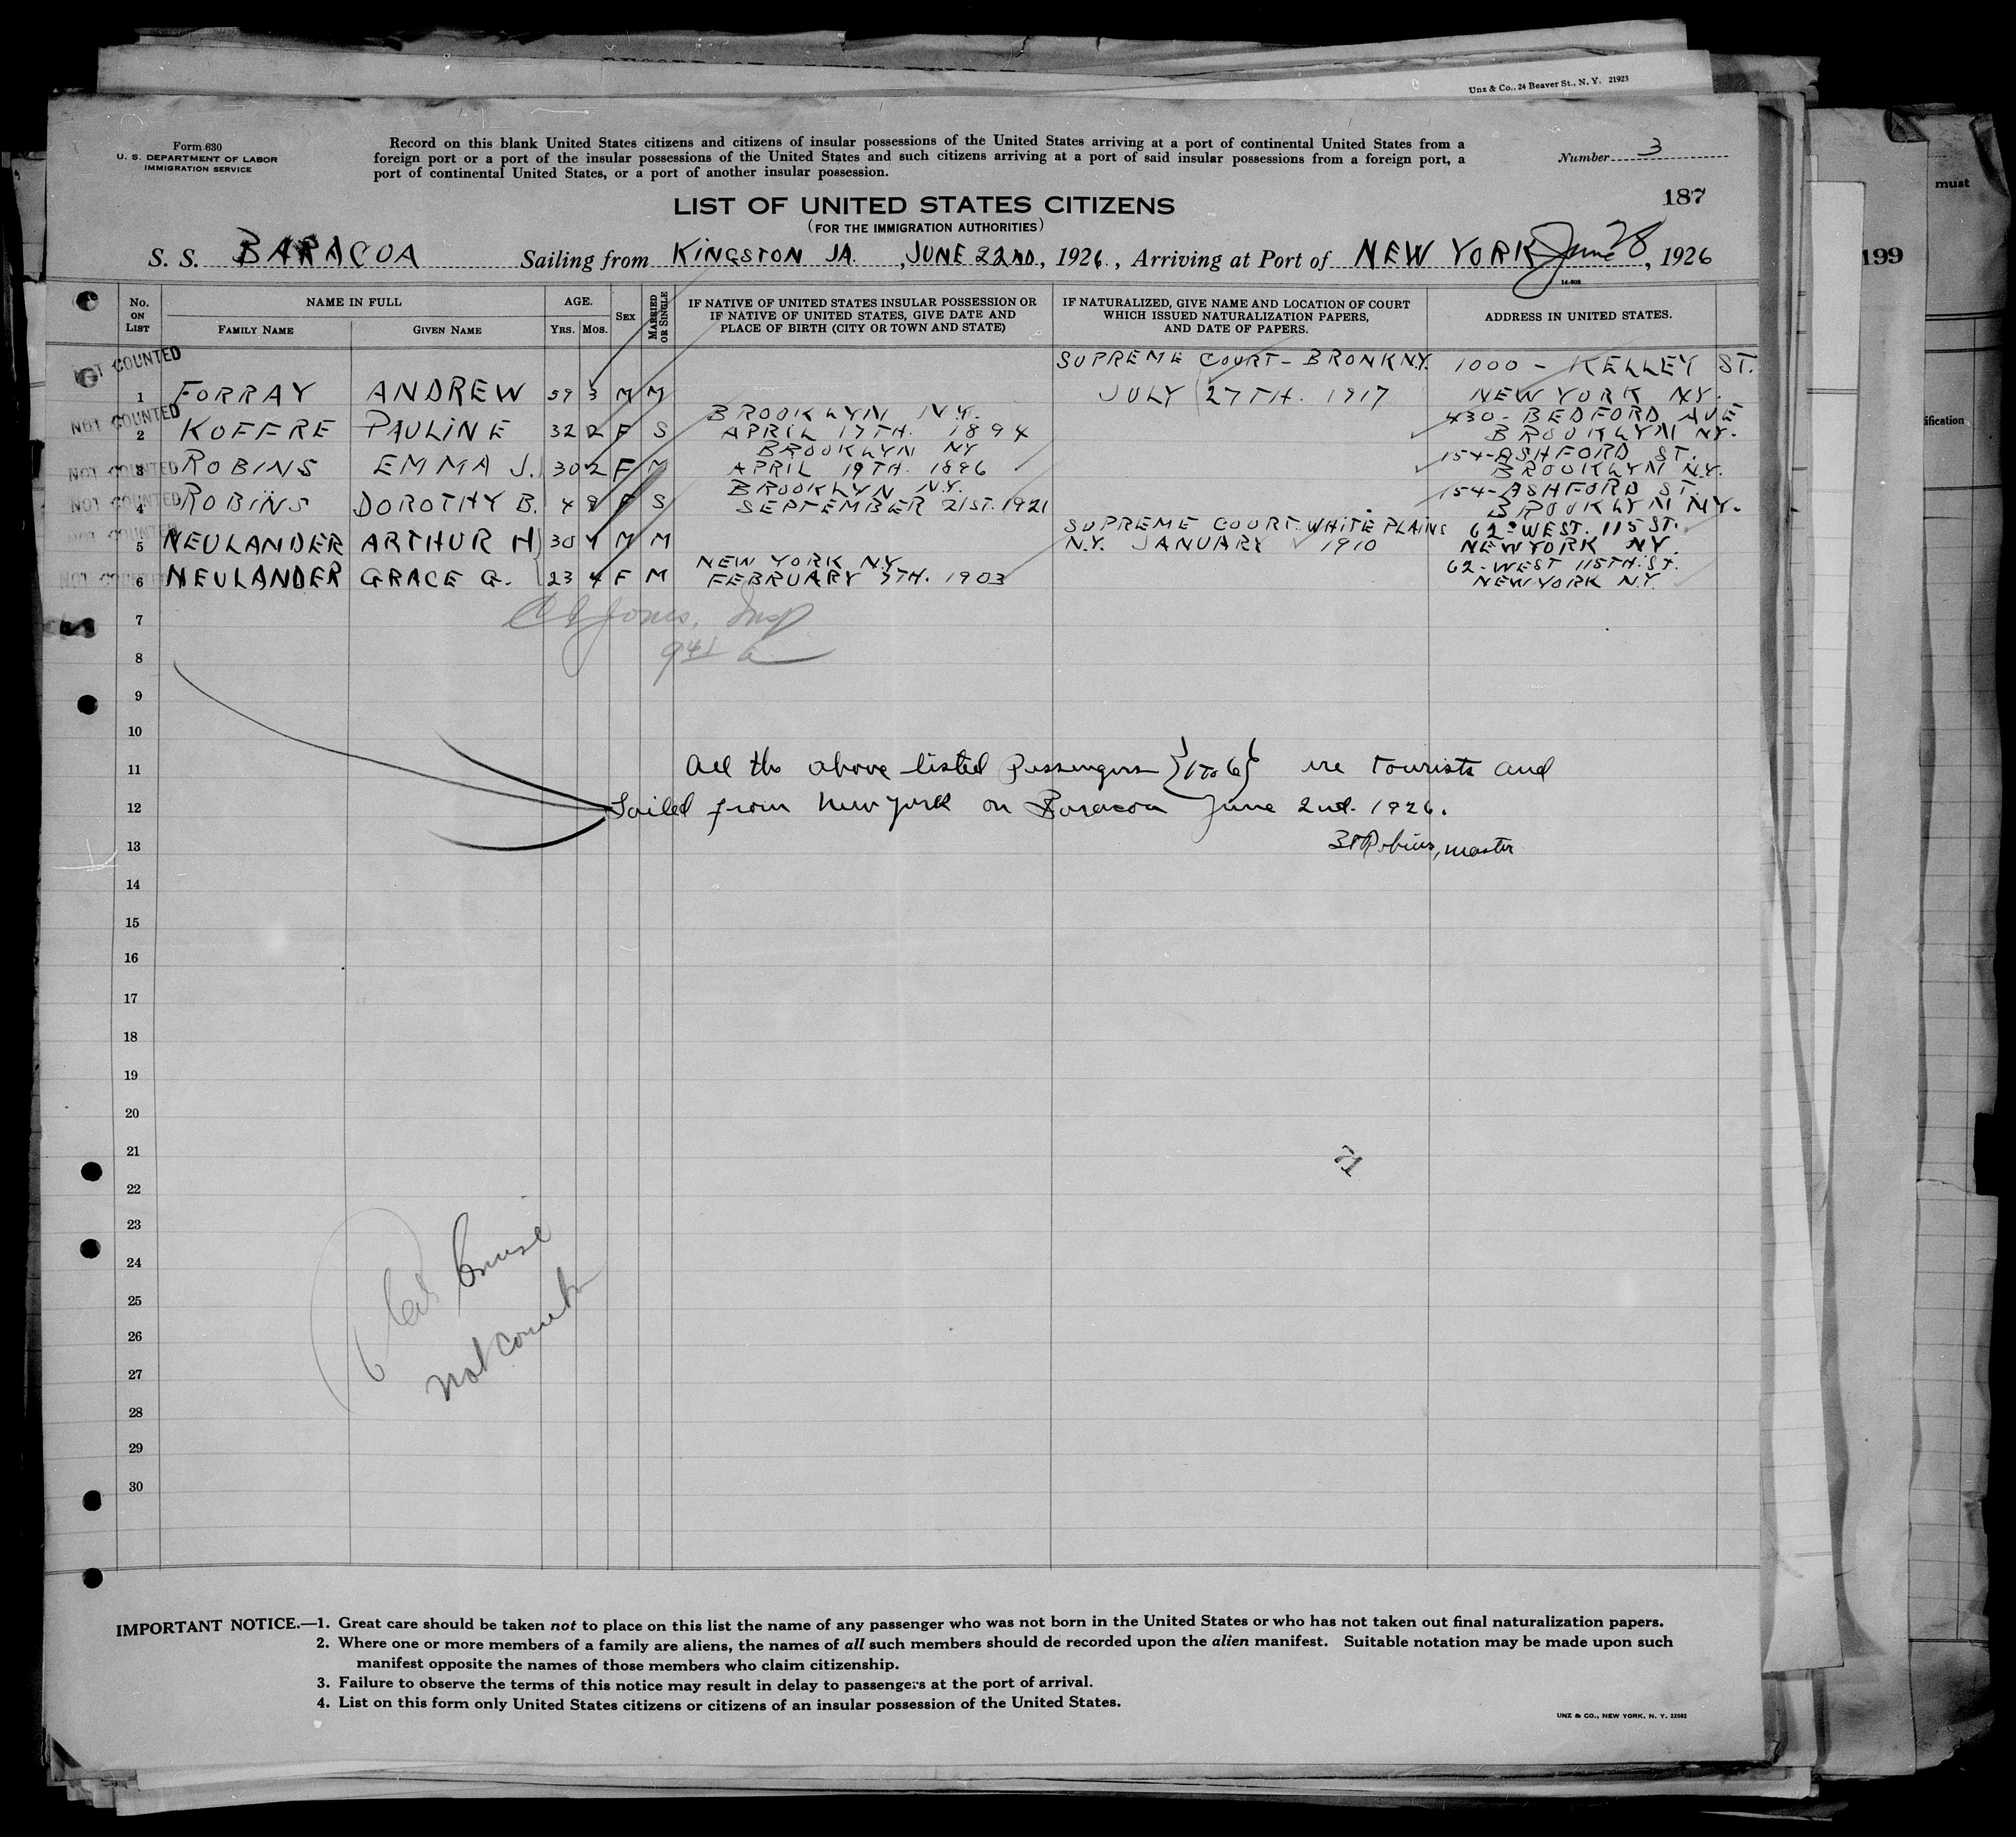 Unz & Co., 24 Beaver St., N. Y. 21923
must
199
ification
Form 630
U. S. DEPARTMENT OF LABOR
IMMIGRATION SERVICE
Record on this blank United States citizens and citizens of insular possessions of the United States arriving at a port of continental United States from a
foreign port or a port of the insular possessions of the United States and such citizens arriving at a port of said insular possessions from a foreign port, a
port of continental United States, or a port of another insular possession.
Number 3
187
LIST OF UNITED STATES CITIZENS
(FOR THE IMMIGRATION AUTHORITIES)
S. S. BARACOA Sailing from KINGSTON JA. , JUNE 22ND, 1926, Arriving at Port of NEW YORK June 28, 1926
14-808
No. ON LIST NAME IN FULL AGE. SEX MARRIED OR SINGLE IF NATIVE OF UNITED STATES INSULAR POSSESSION OR IF NATIVE OF UNITED STATES, GIVE DATE AND PLACE OF BIRTH (CITY OR TOWN AND STATE) IF NATURALIZED, GIVE NAME AND LOCATION OF COURT WHICH ISSUED NATURALIZATION PAPERS, AND DATE OF PAPERS. ADDRESS IN UNITED STATES.
FAMILY NAME GIVEN NAME YRS. MOS.
NOT COUNTED SUPREME COURT - BRONK N.Y. 1000 - KELLEY ST.
1 FORRAY ANDREW 59 3 M M JULY 27TH. 1917 NEW YORK NY.
NOT COUNTED BROOKLYN N.Y. 430 - BEDFORD AVE
2 KOFFRE PAULINE 32 2 F S APRIL 17TH. 1894 BROOKLYN NY.
NOT COUNTED BROOKLYN NY 154-ASHFORD ST.
3 ROBINS EMMA J. 30 2 F M APRIL 19TH. 1896 BROOKLYN N.Y.
NOT COUNTED BROOKLYN N.Y. 154-ASHFORD ST.
4 ROBINS DOROTHY B. 4 9 F S SEPTEMBER 21ST. 1921 BROOKLYN NY.
NOT COUNTED SUPREME COURT WHITE PLAINS 62-WEST. 115 ST.
5 NEULANDER ARTHUR H 30 4 M M N.Y. JANUARY 1910 NEW YORK NY.
NOT COUNTED NEW YORK N.Y. 62-WEST 115TH. ST.
6 NEULANDER GRACE G. 23 4 F M FEBRUARY 7TH. 1903 NEW YORK N.Y.
7 Jones, Insp
8
9
10
11 All the above listed Passengers {1 to 6} are tourists and
12 Sailed from New York on Baracoa June 2nd. 1926.
13 Robins, master
14
15
16
17
18
19
20
21 71
22
23
24 Cruise
25
26 not count
27
28
29
30
IMPORTANT NOTICE.—1. Great care should be taken not to place on this list the name of any passenger who was not born in the United States or who has not taken out final naturalization papers.
2. Where one or more members of a family are aliens, the names of all such members should de recorded upon the alien manifest. Suitable notation may be made upon such
manifest opposite the names of those members who claim citizenship.
3. Failure to observe the terms of this notice may result in delay to passengers at the port of arrival.
4. List on this form only United States citizens or citizens of an insular possession of the United States.
UNZ & CO., NEW YORK, N. Y. 22682